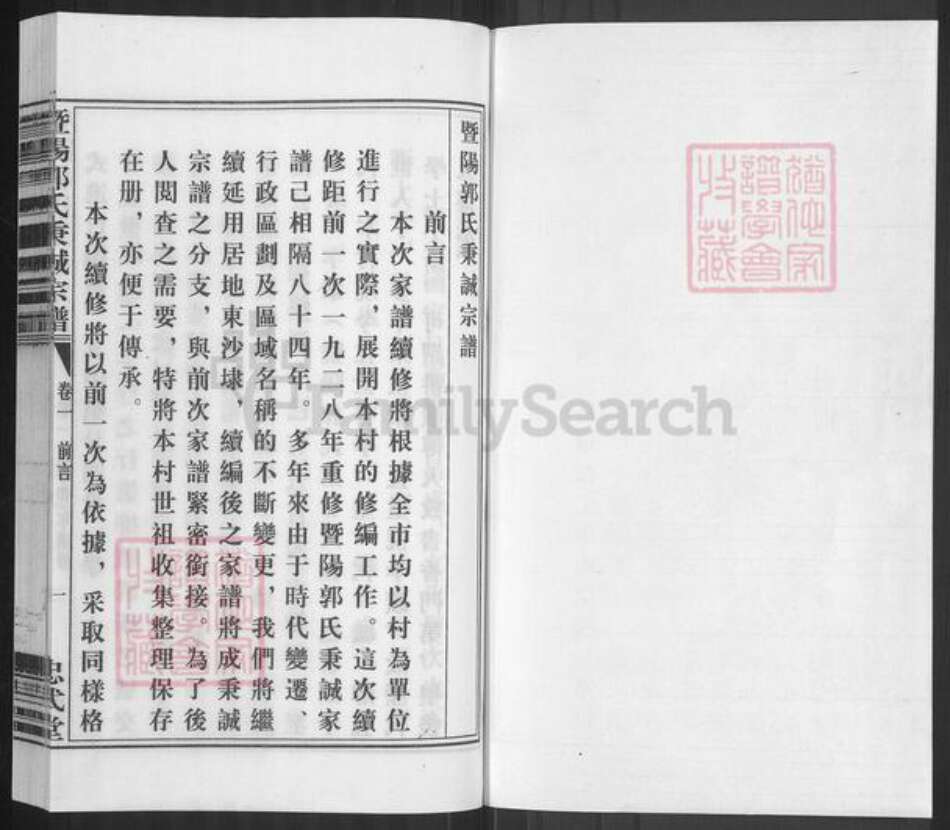 猶他家
譜學會
收藏
暨陽郭氏秉誠宗譜
前言
本次家譜續修將根據全市均以村為單位
進行之實際，展開本村的修編工作。這次續
修距前一次一九二八年重修暨陽郭氏秉誠家
譜己相隔八十四年。多年來由于時代變遷、
行政區劃及區域名稱的不斷變更，我們將繼
續延用居地東沙埭，續編後之家譜將成秉誠
宗譜之分支，與前次家譜緊密銜接。為了後
人閱查之需要，特將本村世祖收集整理保存
在册，亦便于傳承。
本次續修將以前一次為依據，采取同樣格
暨陽郭氏秉誠宗譜
卷一
前言
一
忠武堂
FamilySearch